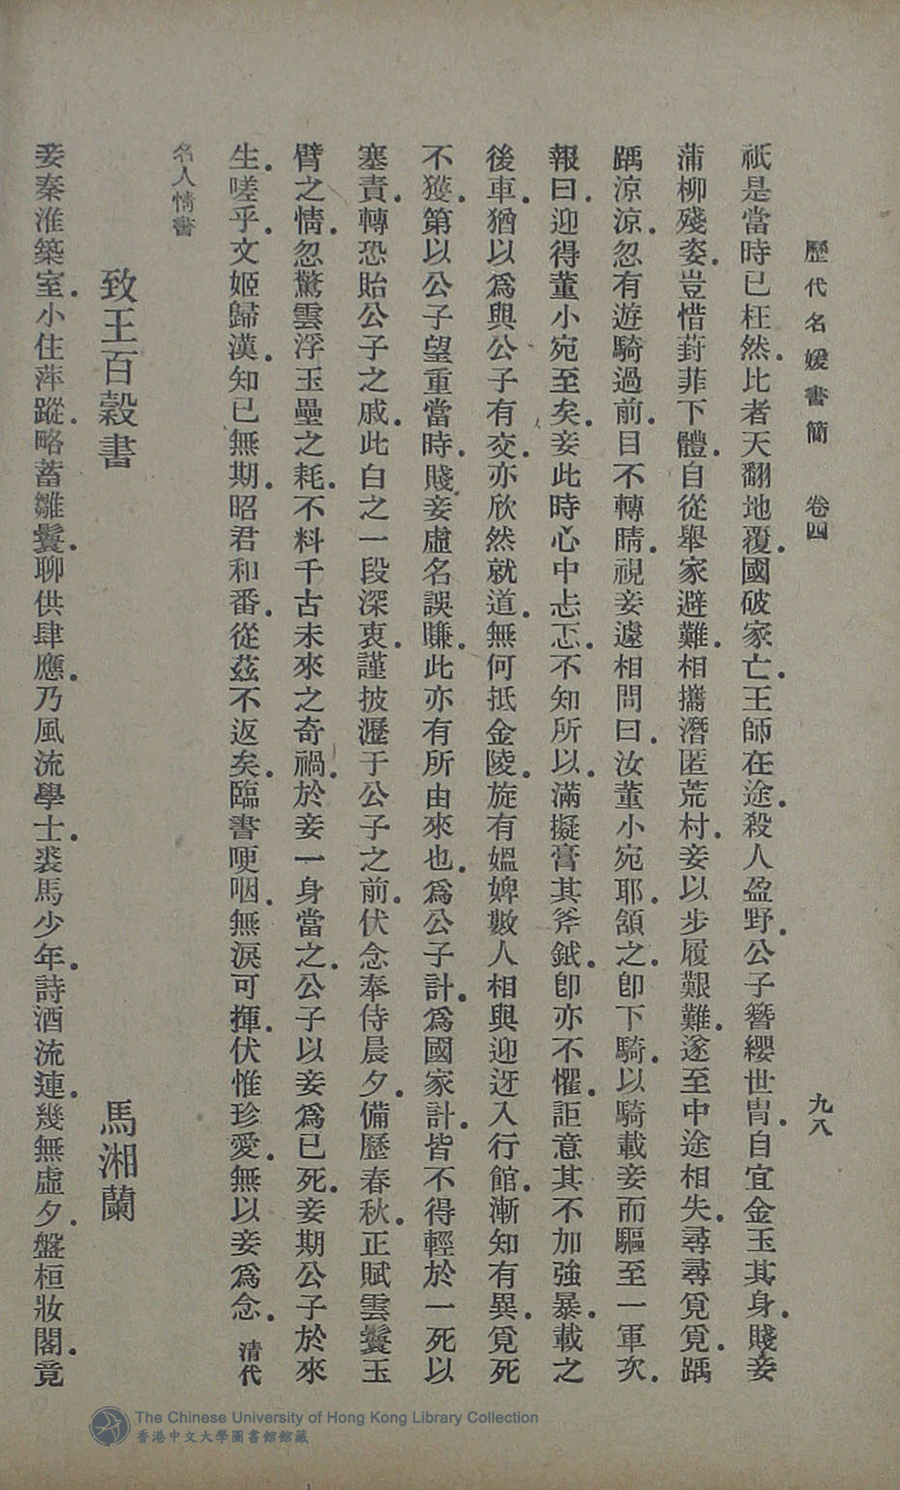 歷代名媛書簡 卷四 九八
祇是當時已枉然。比者天翻地覆。國破家亡。王師在途。殺人盈野。公子簪纓世冑。自宜金玉其身。賤妾
蒲柳殘姿。豈惜葑菲下體。自從舉家避難。相攜潛匿荒村。妾以步履艱難。遂至中途相失。尋尋覓覓。踽
踽涼涼。忽有遊騎過前。目不轉睛。視妾遽相問曰。汝董小宛耶。頷之。卽下騎。以騎載妾而驅至一軍次。
報曰。迎得董小宛至矣。妾此時心中忐忑。不知所以。滿擬膏其斧鉞。卽亦不懼。詎意其不加強暴。載之
後車。猶以爲與公子有交。亦欣然就道。無何抵金陵。旋有媼婢數人相與迎迓入行館。漸知有異。覓死
不獲。第以公子望重當時。賤妾虛名誤賺。此亦有所由來也。爲公子計。爲國家計。皆不得輕於一死以
塞責。轉恐貽公子之戚。此白之一段深衷。謹披瀝于公子之前。伏念奉侍晨夕。備歷春秋。正賦雲鬟玉
臂之情。忽驚雲浮玉壘之耗。不料千古未來之奇禍。於妾一身當之。公子以妾爲已死。妾期公子於來
生。嗟乎。文姬歸漢。知已無期。昭君和番。從茲不返矣。臨書哽咽。無淚可揮。伏惟珍愛。無以妾爲念。 清代
名人情書
致王百穀書 馬湘蘭
妾秦淮築室。小住萍蹤。略蓄雛鬟。聊供肆應。乃風流學士。裘馬少年。詩酒流連。幾無虛夕。盤桓妝閣。竟
The Chinese University of Hong Kong Library Collection
香港中文大學圖書館館藏